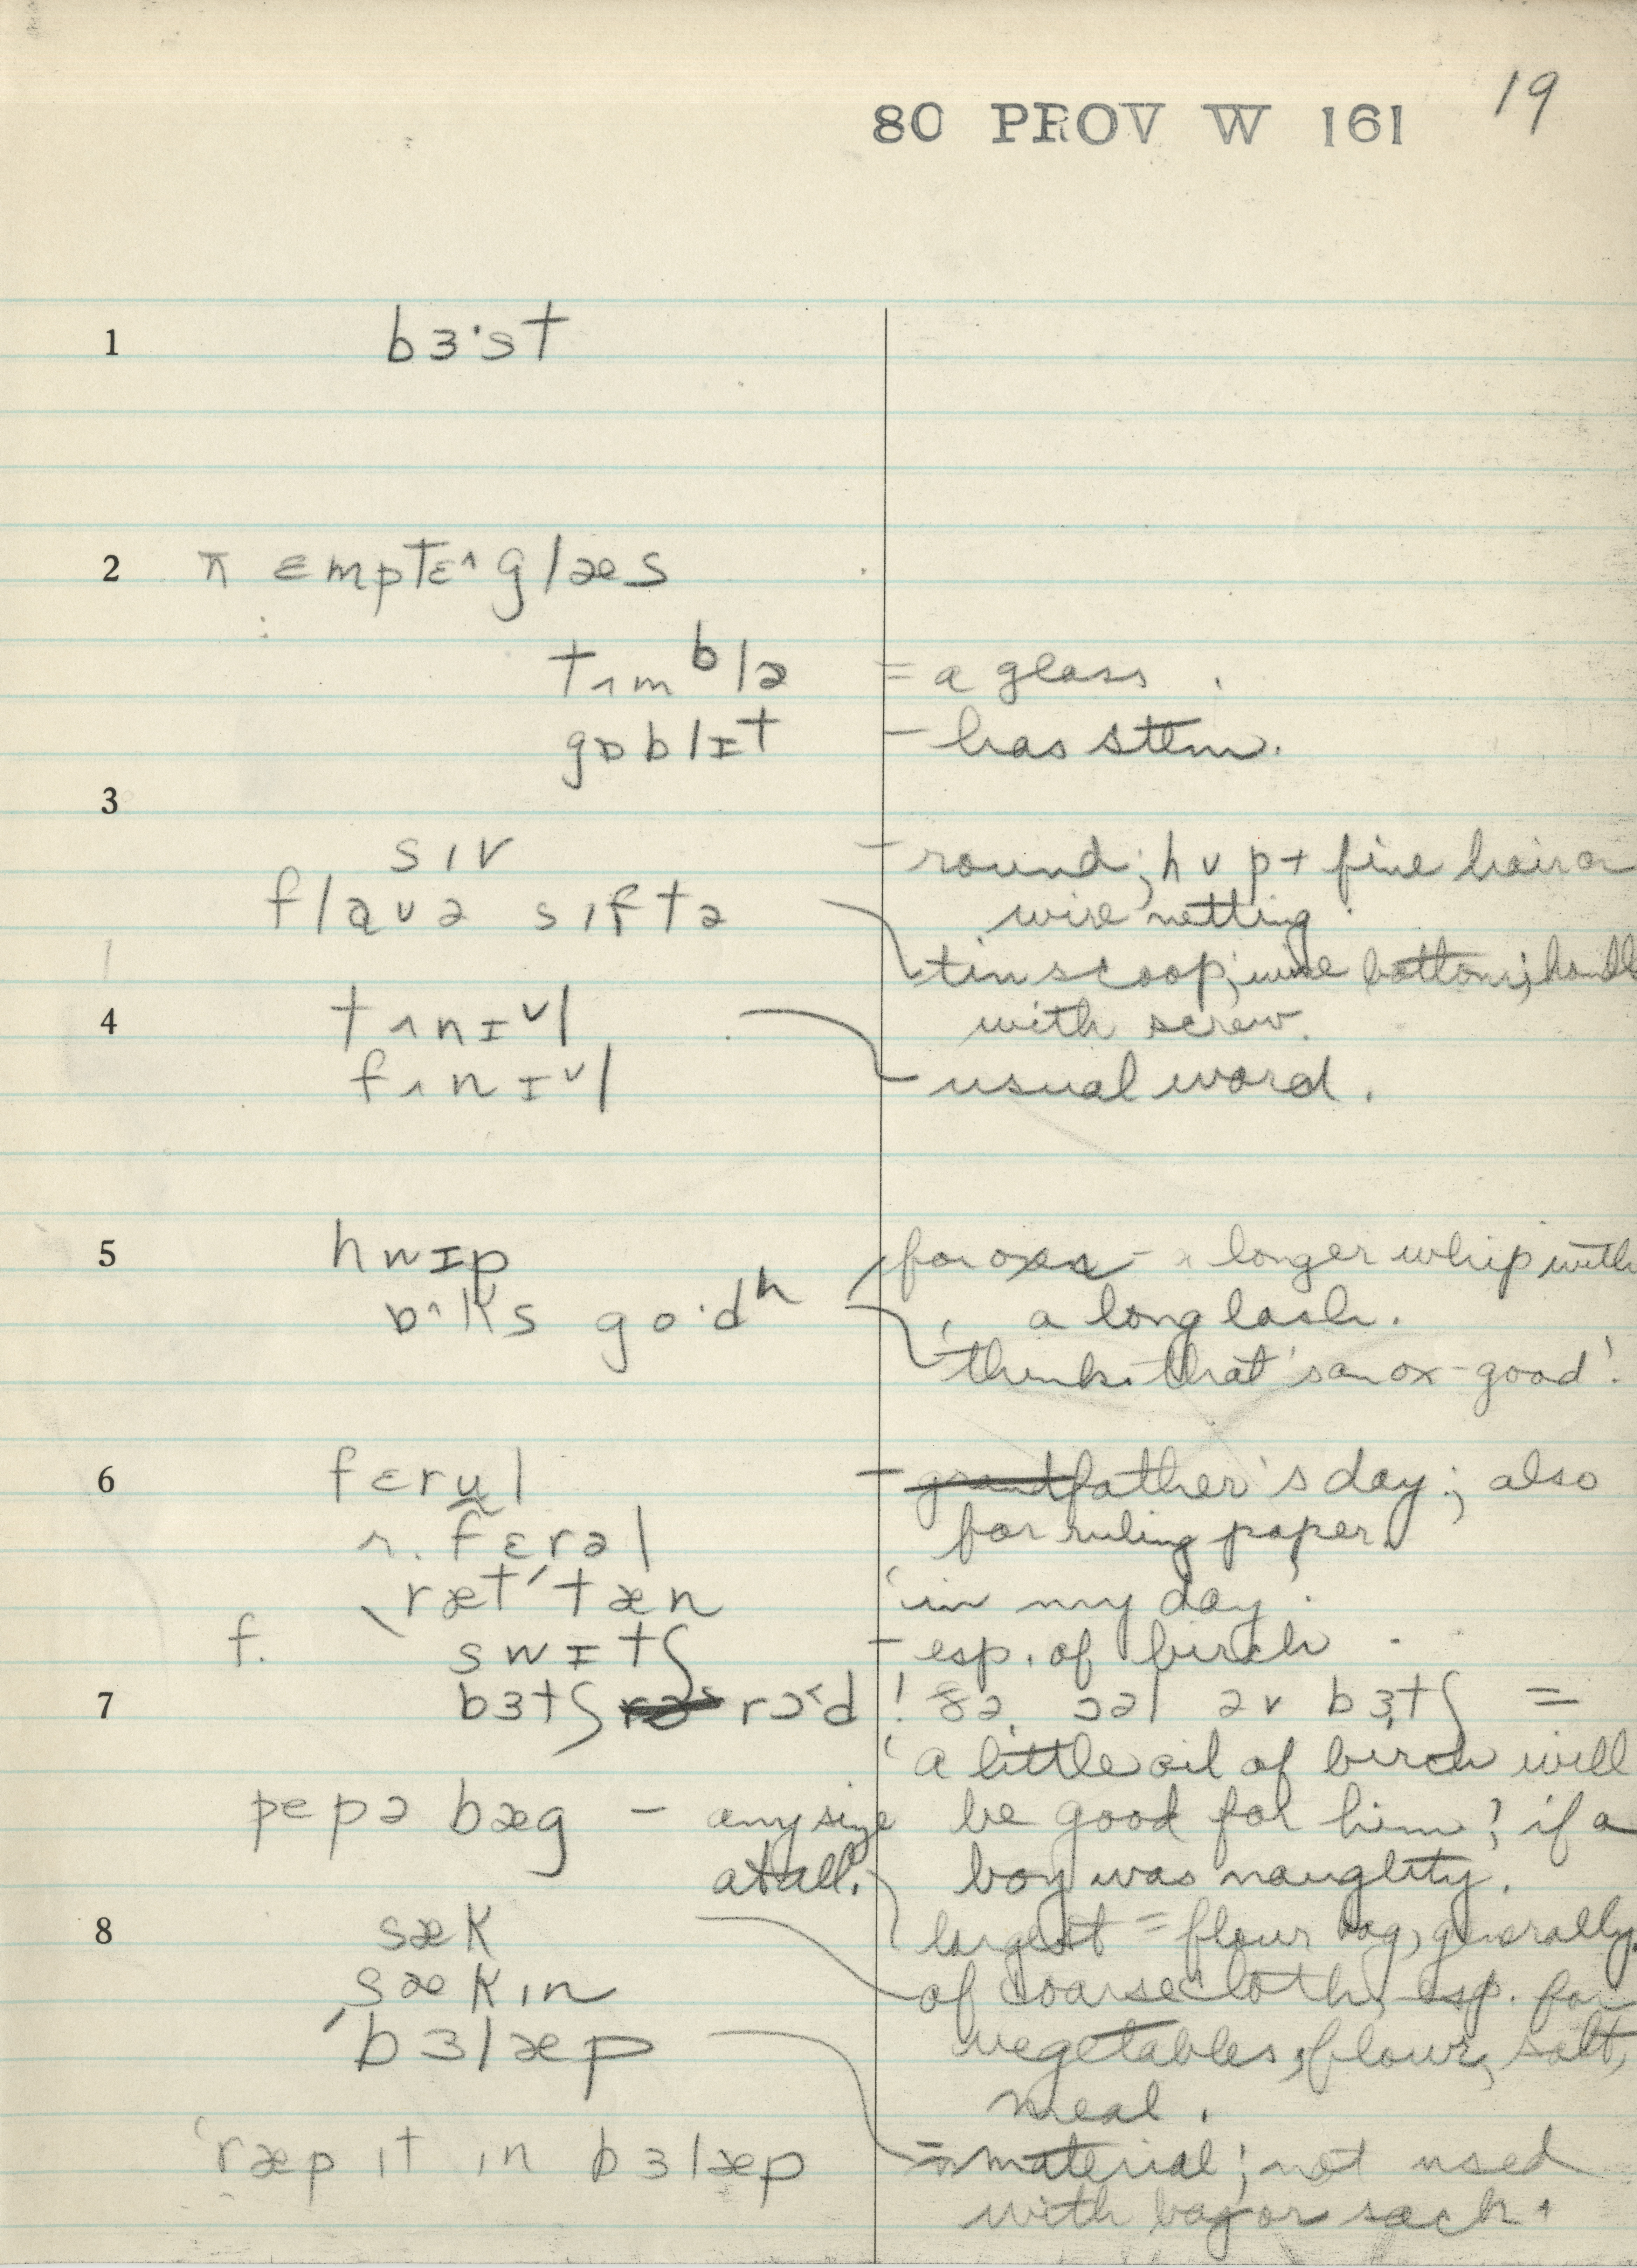 80 PROV W 161 19
1 bɜ·st
2 ɛmptɛ^ glæs
tʌmᵇlə = a glass.
gɒblɪt – has stem.
3
sɪv – round; h v p + fine hair or
flɑuə sɪftə wire netting.
tin scoop; wire bottom; handle
4 tʌnɪᵛl with screw.
fʌnɪᵛl – usual word.
5 hwɪp for oxen – longer whip with
go·dʰ a long lash.
'thinks that's an ox-good'.
6 fɛrul – grandfather's day; also
n. fɛrəl for ruling paper.
ræt'tæn 'in my day'.
f. swɪtʃ – esp. of birch.
7 bɜtʃ rɔ˂d ! ðə ɔəl əv bɜtʃ =
'a little oil of birch will
pepə bæg – any size be good for him'! if a
at all. boy was naughty.
8 sæk largest = flour bag, generally
sækɪn of coarse cloth, esp. for
'bɜlæp vegetables, flour, salt,
meal.
'ræp ɪt ɪn bɜlæp = material; not used
with bag or sack.